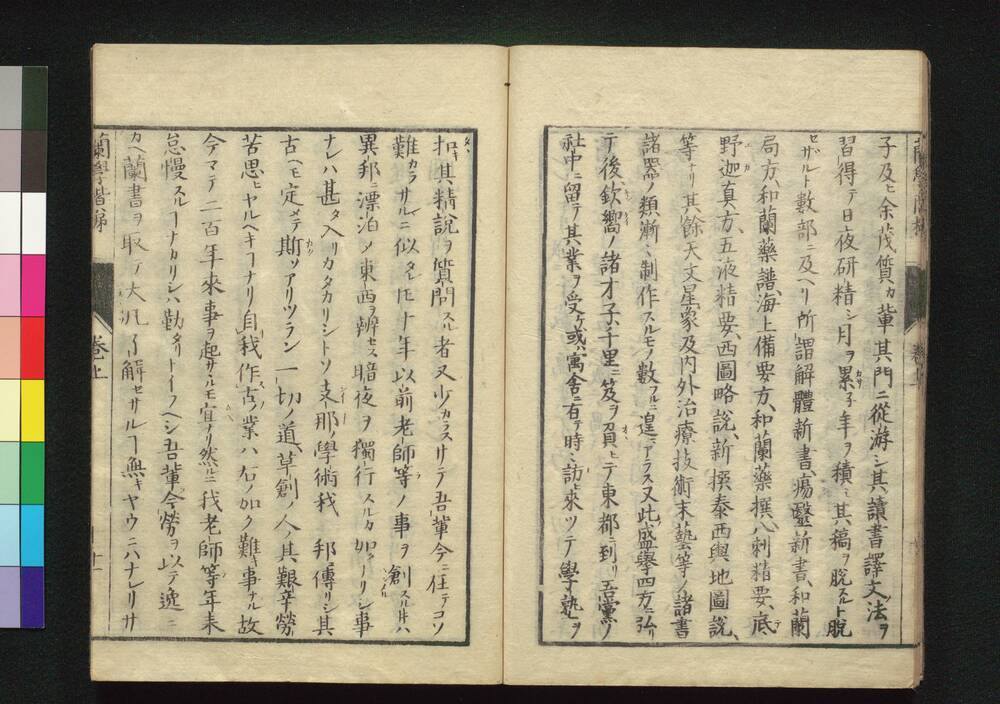 子及ヒ余茂質カ輩其門ニ從游シ其讀書譯文法ヲ
習得テ日夜研精シ月ヲ累子年ヲ積ミ其稿ヲ脫スルト脫
セザルト數部ニ及ヘリ所謂解體新書、瘍醫新書、和蘭
局方、和蘭藥譜、海上備要方、和蘭藥撰、八刺精要、底
野迦真方、五液精要、西圖略說、新撰泰西輿地圖說、
等ナリ其餘天文星象及内外治療技術末藝等ノ諸書
諸器ノ類漸ニ制作スルモノ數フルニ遑ニアラス又此盛擧四方ニ弘リ
テ後、欽嚮ノ諸才子、千里ニ笈ヲ負ヒテ東都ニ到リ吾黨ノ
社中ニ留テ其業ヲ受ケ或ハ寓舎ニ有テ時ニ訪ヒ來ツテ學塾ヲ
扣キ其精說ヲ質問スル者又少カラスサテ吾輩今ニ在テコソ
難カラサルニ似タレ𪜈十年以前老師等ノ事ヲ創スル𪜈ハ
異邦ニ漂泊メ東西ヲ辨セス暗夜ヲ獨行スルカ如クナリシ事
ナレハ甚タ入リカタカリシトソ支那ノ學術我 邦ニ傳リシ其
古ヘモ定メテ斯ソアリツラン一切ノ道、草創ノ人ノ其艱辛勞
苦思ヒヤルヘキヿナリ自我作古ノ業ハ右ノ如ク難キ事ナル故
今マテ二百年來事ヲ起サヽルモ宜ナリ然ルニ我老師等年来
怠慢スルヿナカリシハ勤タリトイフヘシ吾輩今勞ヲ以テ逸ニ
カヘ蘭書ヲ取テ大汎了解セサルヿ無キヤウニハナレリサ
蘭學階梯
卷上
十一